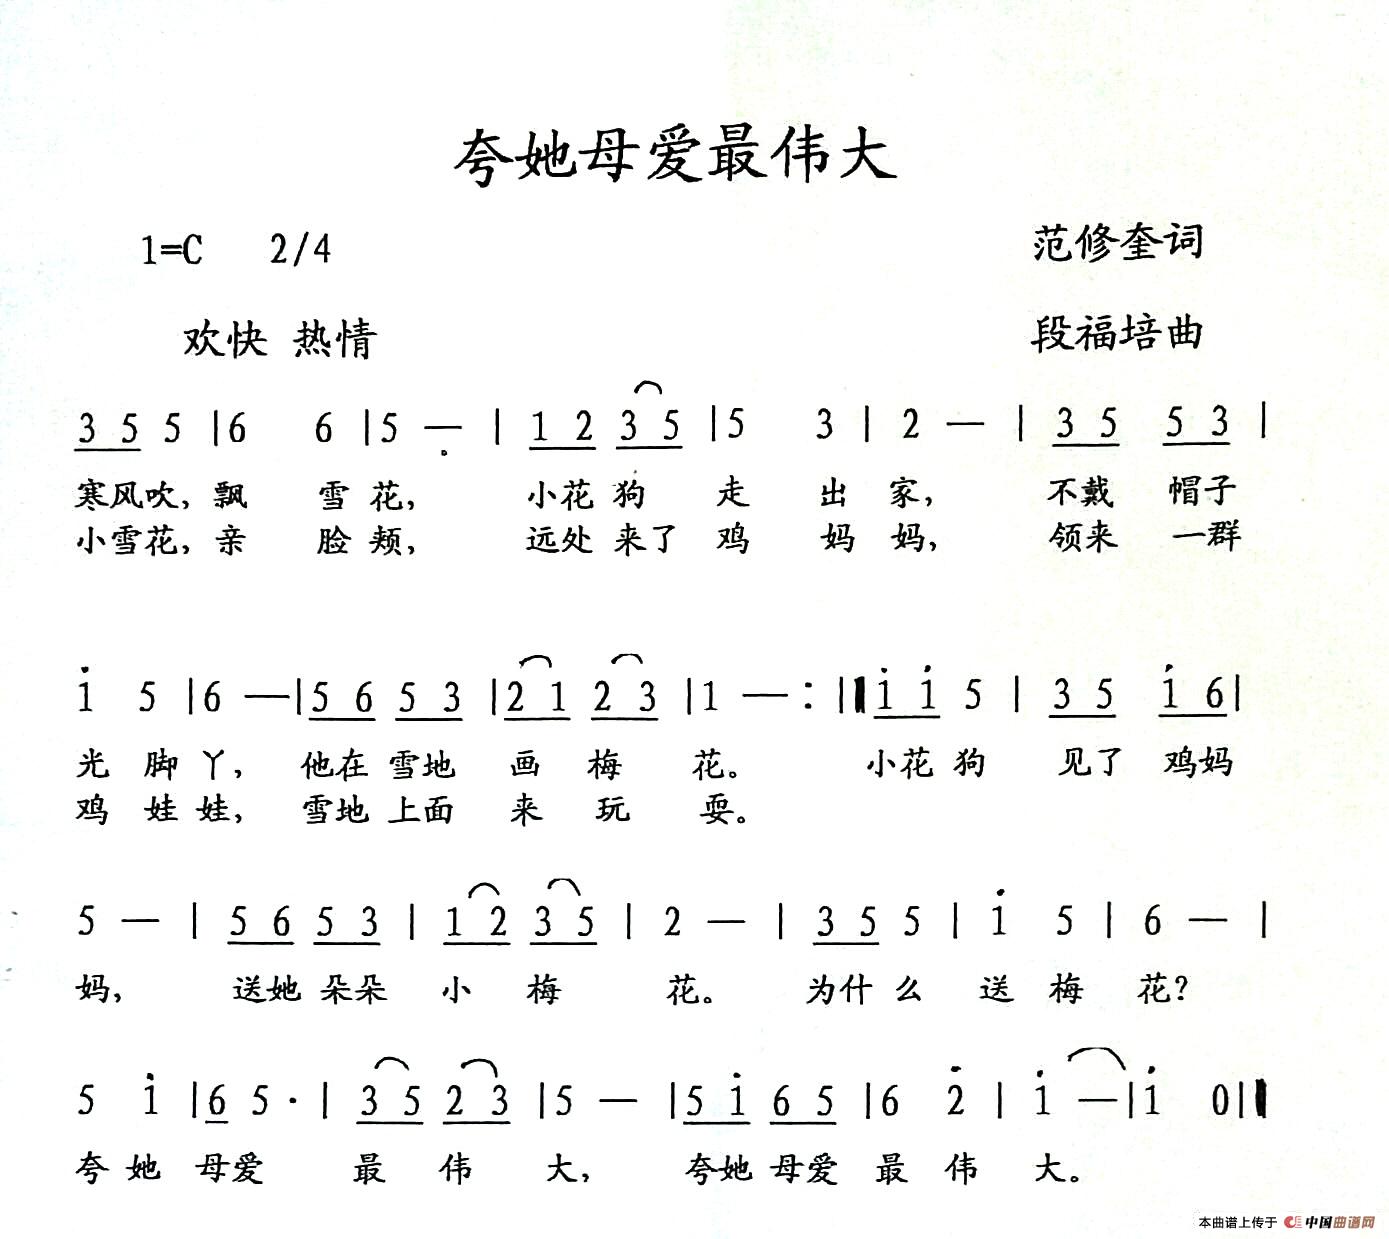 夸她母爱最伟大
1=C 2/4 范修奎词
欢快 热情 段福培曲
3 5 5 |6 6 |5 — | 1 2 3 5 |5 3 | 2 — | 3 5 5 3 |
寒风吹，飘 雪 花， 小花 狗 走 出 家， 不戴 帽子
小雪花，亲 脸 颊， 远处 来了 鸡 妈 妈， 领来 一群
i 5 |6 —|5 6 5 3 |2 1 2 3 |1 —：‖i i 5 | 3 5 i 6|
光 脚 丫， 他在 雪地 画 梅 花。 小花 狗 见了 鸡妈
鸡 娃 娃， 雪地 上面 来 玩 耍。
5 — | 5 6 5 3 | 1 2 3 5 | 2 — | 3 5 5 | i 5 | 6 — |
妈， 送她 朵朵 小 梅 花。 为什 么 送 梅 花？
5 i |6 5· | 3 5 2 3 |5 — |5 i 6 5 |6 2̇ | i —|i 0‖
夸 她 母爱 最 伟 大， 夸她 母爱 最 伟 大。
本曲谱上传于 中国曲谱网